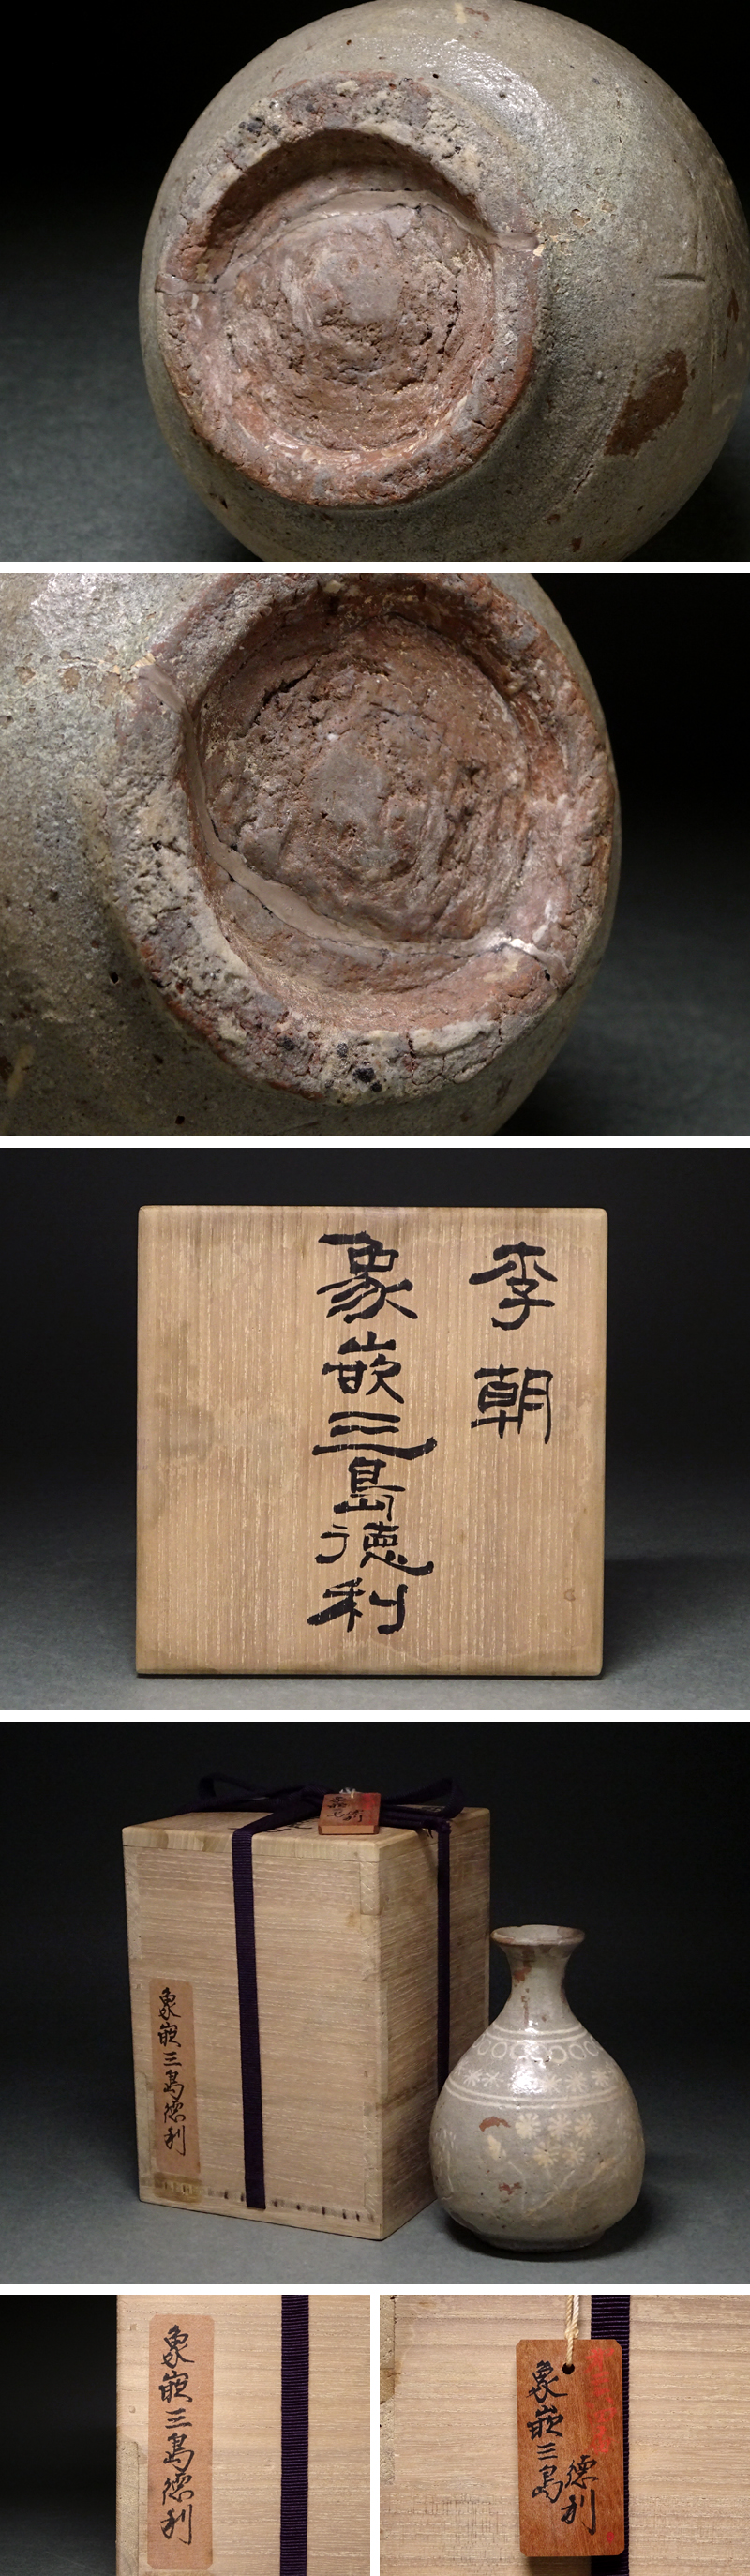 李朝
象嵌三島徳利
象嵌三島徳利
象嵌三島徳利
象嵌三島
徳利